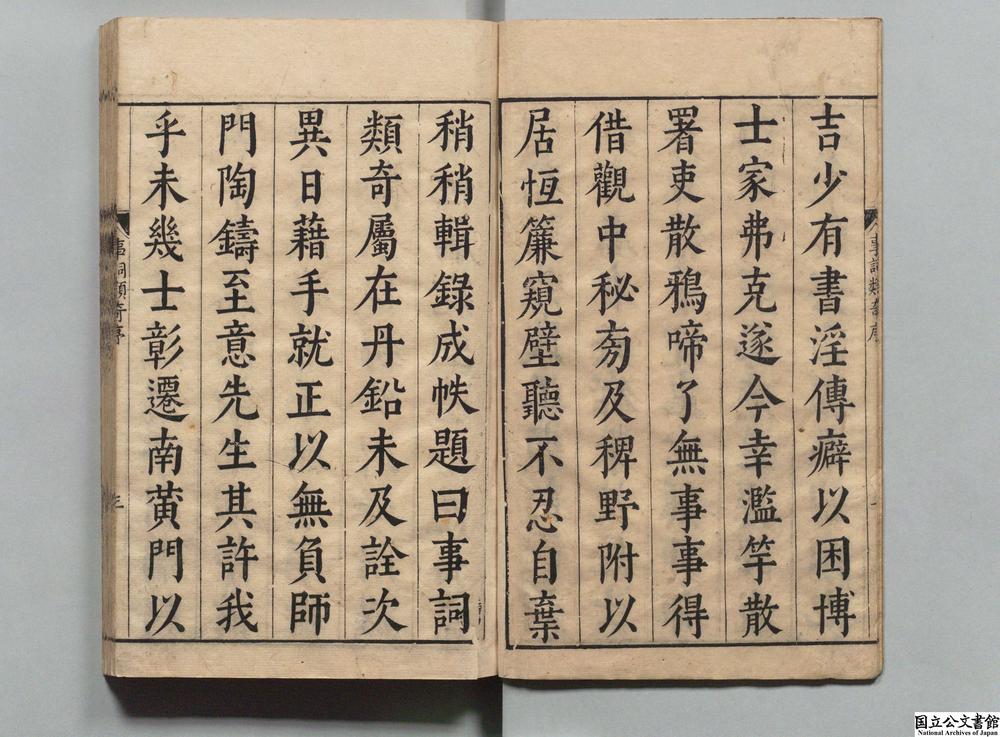 吉少有書淫傳癖以困博
士家弗克遂今幸濫竽散
署吏散鴉啼了無事事得
借觀中秘旁及稗野附以
居恆簾窺壁聽不忍自棄
稍稍輯錄成帙題曰事詞
類奇屬在丹鉛未及詮次
異日藉手就正以無負師
門陶鑄至意先生其許我
乎未幾士彰遷南黃門以
事詞類奇序
事詞類奇序
三
国立公文書館
National Archives of Japan